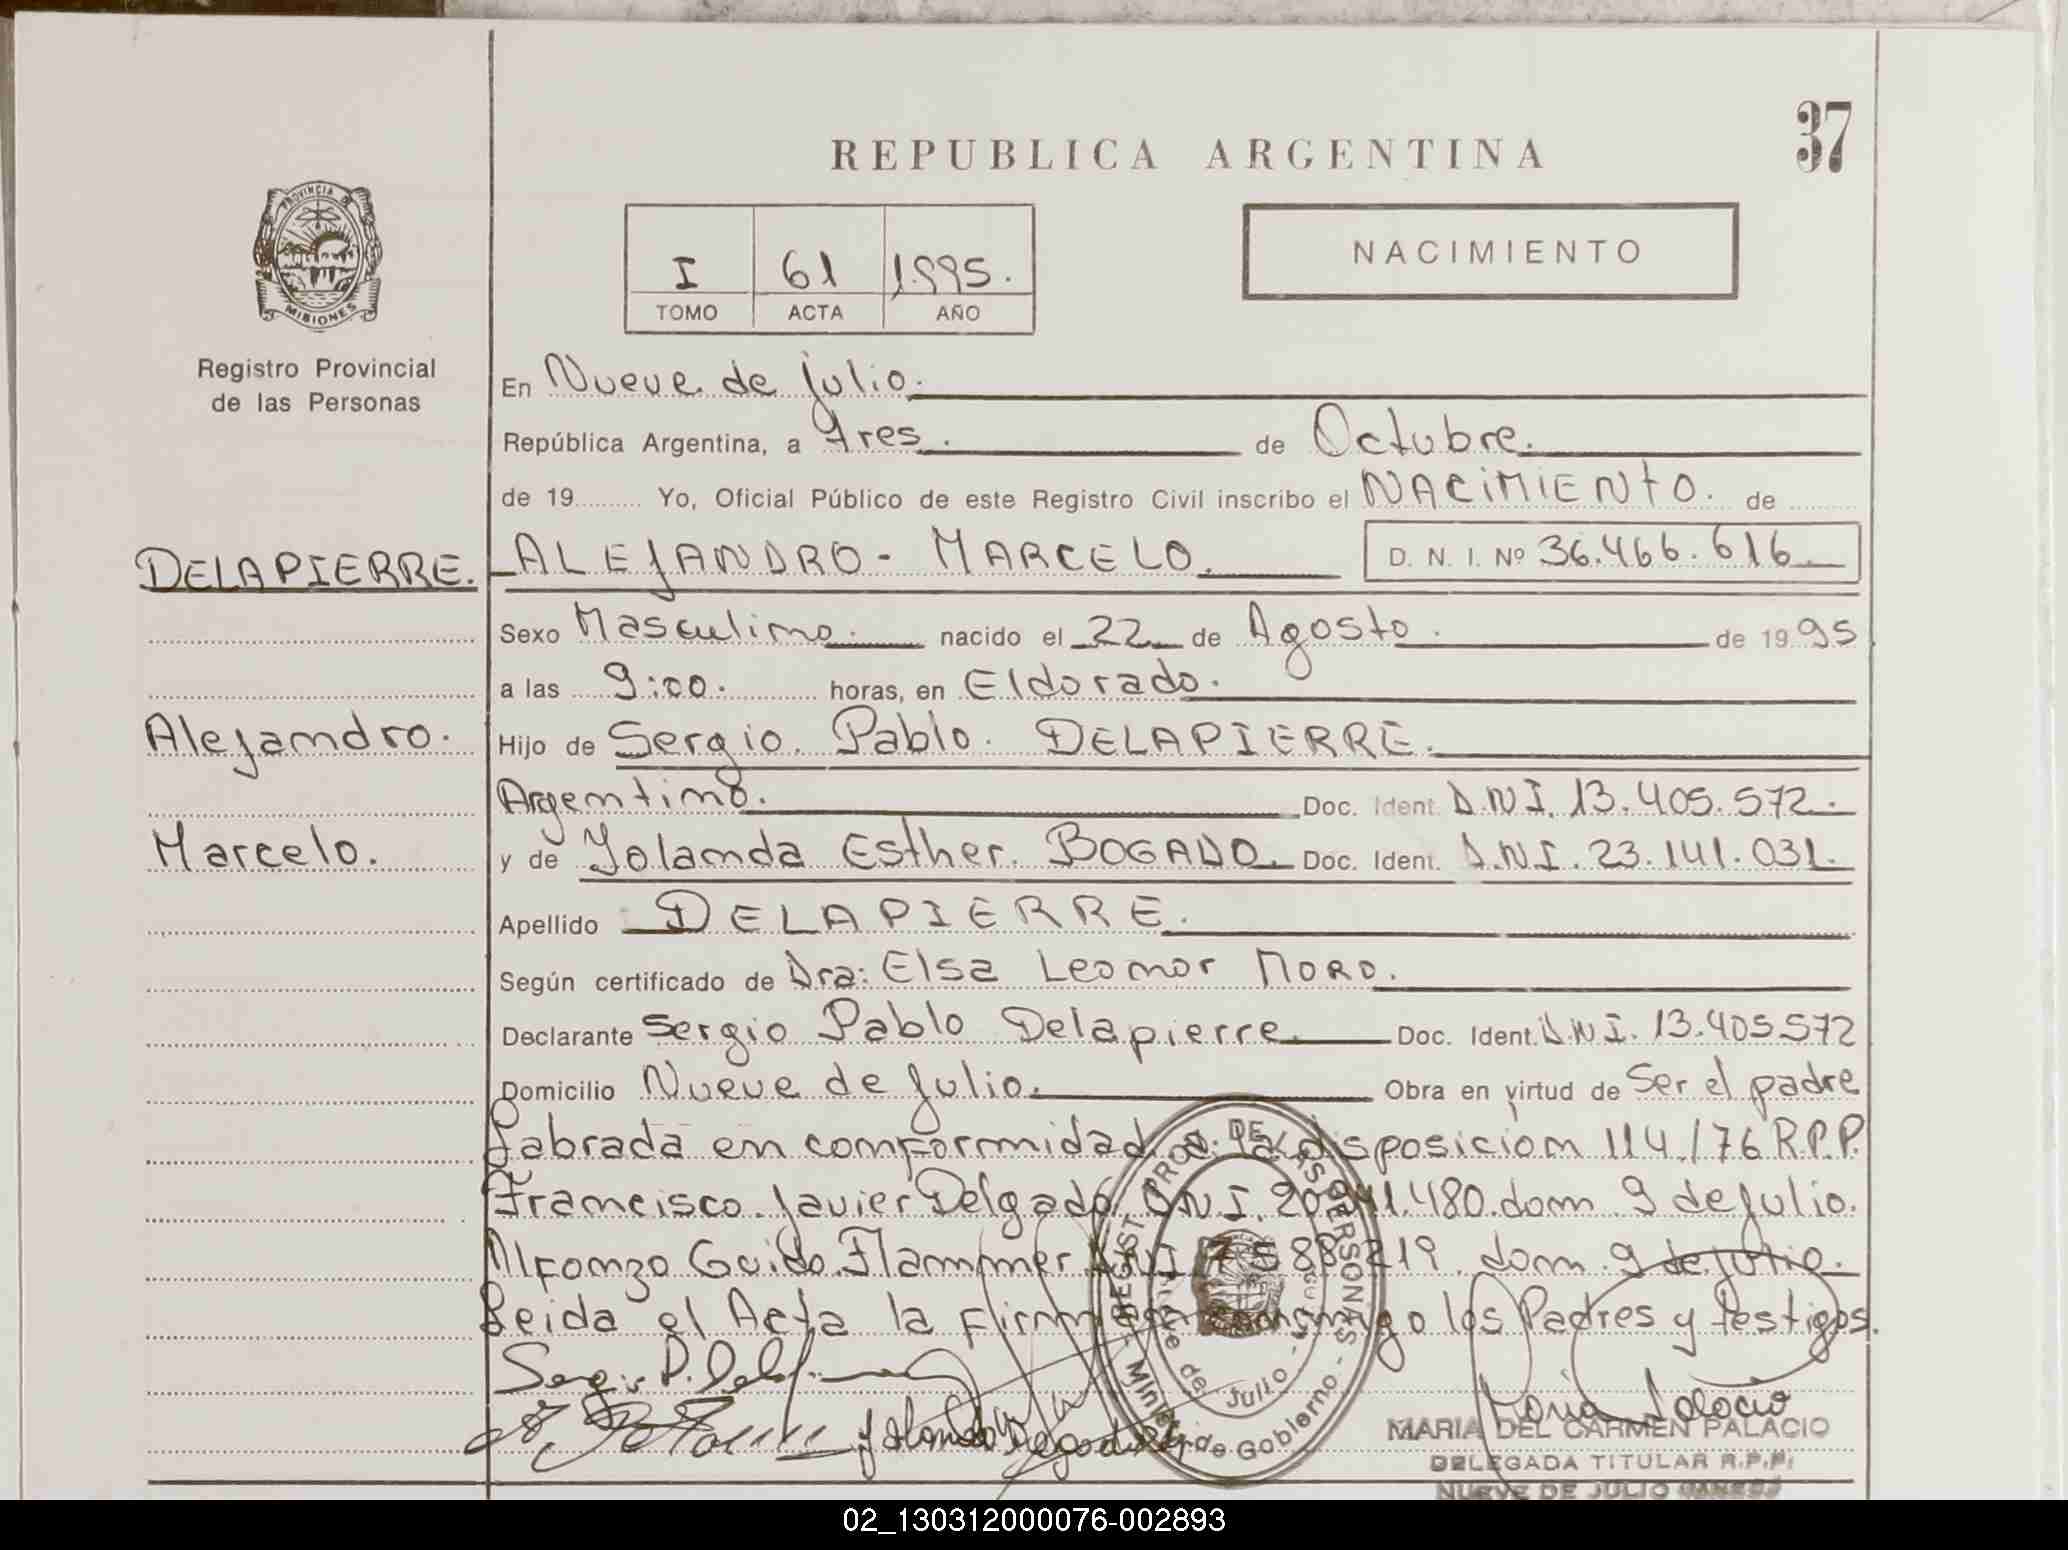 REPUBLICA ARGENTINA
37
PROVINCIA DE
MISIONES
Registro Provincial
de las Personas
I 61 1.995.
TOMO ACTA AÑO
NACIMIENTO
En Nueve de julio.
República Argentina, a tres. de Octubre.
de 19......... Yo, Oficial Público de este Registro Civil inscribo el NACIMIENTO. de
DELAPIERRE. ALEJANDRO - MARCELO. D. N. I. Nº 36.466.616
Sexo Masculino. nacido el 22 de Agosto. de 1995
a las 9:00. horas, en Eldorado.
Alejandro. Hijo de Sergio. Pablo. DELAPIERRE.
Argentino. Doc. Ident. D.N.I. 13.405.572.
Marcelo. y de Yolanda Esther. BOGADO. Doc. Ident. D.N.I. 23.141.031.
Apellido DELAPIERRE.
Según certificado de Dra: Elsa Leonor MORO.
Declarante Sergio Pablo Delapierre. Doc. Ident. D.N.I. 13.405572
Domicilio Nueve de Julio. Obra en virtud de Ser el padre
Labrada en conformidad a la disposicion 114/76 R.P.P.
Francisco Javier Delgado. D.N.I. 20.941.480. dom 9 de Julio.
Alfonzo Guido Flammer D.N.I. 7 588 219. dom. 9 de julio.
Leida el Acta la firman conmigo los Padres y testigos.
REGIST. PROV. DE LAS PERSONAS
Nueve de Julio
Minist. de Gobierno
MARIA DEL CARMEN PALACIO
DELEGADA TITULAR R.P.P.
NUEVE DE JULIO
02_130312000076-002893